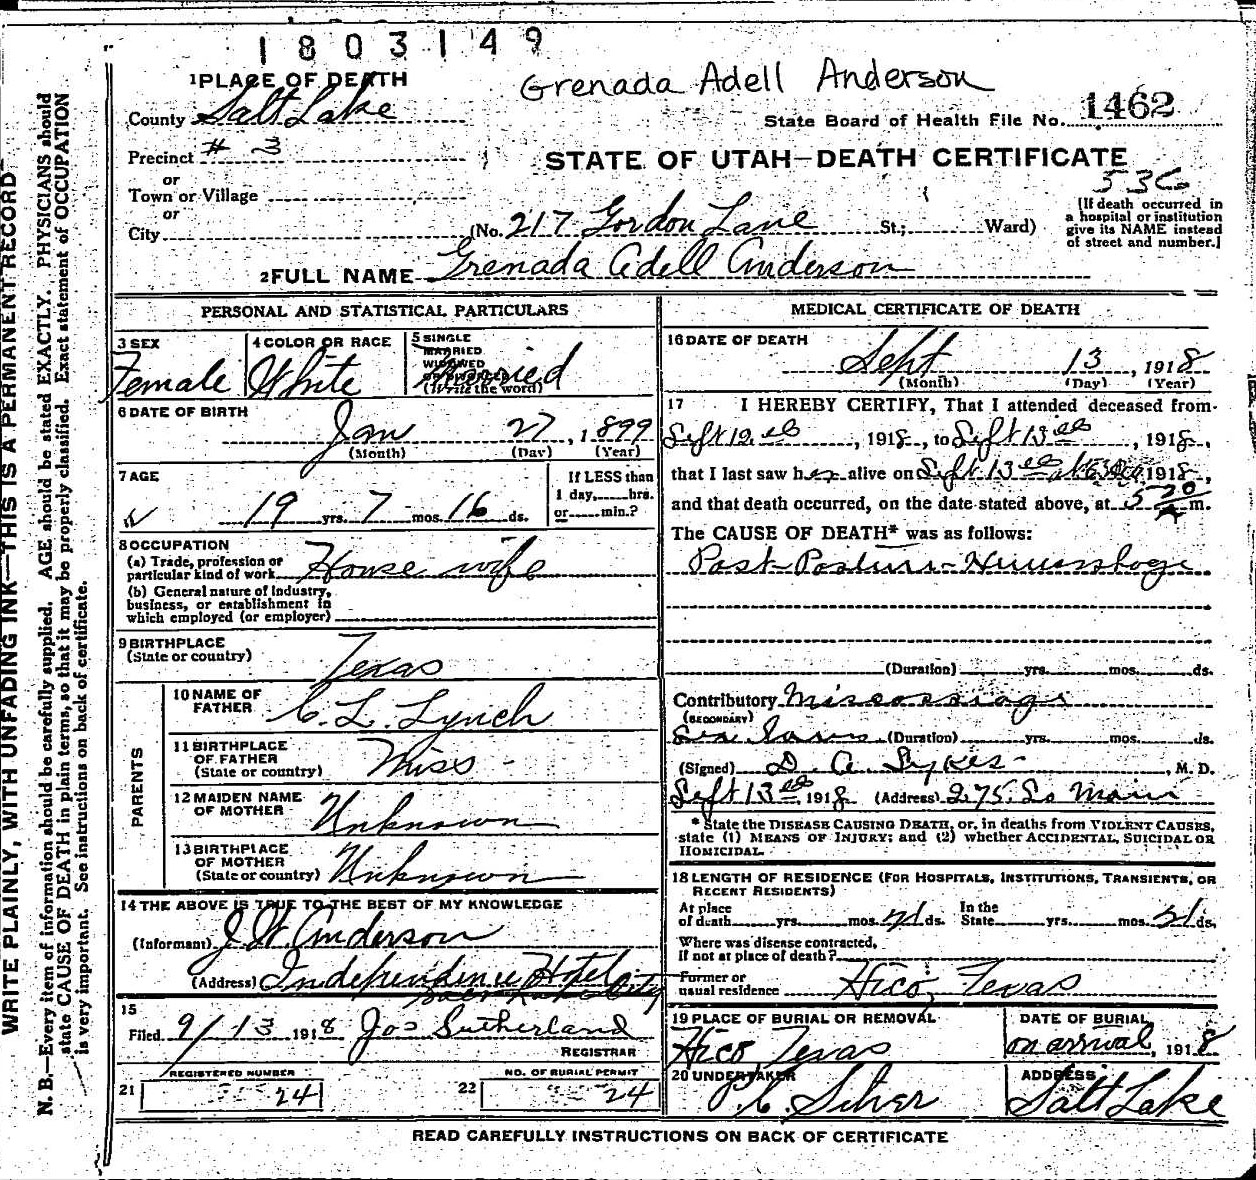 1803149
Grenada Adell Anderson
1 PLACE OF DEATH
County Salt Lake
State Board of Health File No. 1462
Precinct # 3
STATE OF UTAH—DEATH CERTIFICATE
or
Town or Village
or
City (No. 217 Gordon Lane St.; Ward)
[If death occurred in
a hospital or institution
give its NAME instead
of street and number.]
2 FULL NAME Grenada Adell Anderson
PERSONAL AND STATISTICAL PARTICULARS
3 SEX
Female
4 COLOR OR RACE
White
5 SINGLE
MARRIED
WIDOWED
OR DIVORCED
(Write the word)
Married
6 DATE OF BIRTH
Jan 27, 1899
(Month) (Day) (Year)
7 AGE
19 yrs. 7 mos. 16 ds.
If LESS than
1 day, hrs.
or min.?
8 OCCUPATION
(a) Trade, profession or
particular kind of work House wife
(b) General nature of Industry,
business, or establishment in
which employed (or employer)
9 BIRTHPLACE
(State or country) Texas
PARENTS
10 NAME OF
FATHER C. L. Lynch
11 BIRTHPLACE
OF FATHER
(State or country) Miss -
12 MAIDEN NAME
OF MOTHER Unknown
13 BIRTHPLACE
OF MOTHER
(State or country) Unknown
14 THE ABOVE IS TRUE TO THE BEST OF MY KNOWLEDGE
(Informant) J. W. Anderson
(Address) Independence Hotel
Salt Lake City
15
Filed 9/13 1918 Jos Sutherland
REGISTRAR
REGISTERED NUMBER
21 24
NO. OF BURIAL PERMIT
22 24
MEDICAL CERTIFICATE OF DEATH
16 DATE OF DEATH
Sept 13, 1918
(Month) (Day) (Year)
17 I HEREBY CERTIFY, That I attended deceased from
, 1918, to Sept 13th, 1918,
that I last saw her alive on Sept 13th 1918,
and that death occurred, on the date stated above, at 5 20 A m.
The CAUSE OF DEATH* was as follows:
(Duration) yrs. mos. ds.
Contributory
(SECONDARY)
(Duration) yrs. mos. ds.
(Signed) D. A. Sykes , M. D.
Sept 13th 1918 (Address) 275 So Main
* State the DISEASE CAUSING DEATH, or, in deaths from VIOLENT CAUSES,
state (1) MEANS OF INJURY; and (2) whether ACCIDENTAL, SUICIDAL OR
HOMICIDAL.
18 LENGTH OF RESIDENCE (FOR HOSPITALS, INSTITUTIONS, TRANSIENTS, OR
RECENT RESIDENTS)
At place
of death yrs. mos. 21 ds.
In the
State yrs. mos. 21 ds.
Where was disease contracted,
If not at place of death?
Former or
usual residence Hico, Texas
19 PLACE OF BURIAL OR REMOVAL
Hico, Texas
DATE OF BURIAL
on arrival, 1918
20 UNDERTAKER
ADDRESS
Salt Lake
READ CAREFULLY INSTRUCTIONS ON BACK OF CERTIFICATE
WRITE PLAINLY, WITH UNFADING INK—THIS IS A PERMANENT RECORD
N. B.—Every item of information should be carefully supplied. AGE should be stated EXACTLY. PHYSICIANS should
state CAUSE OF DEATH in plain terms, so that it may be properly classified. Exact statement of OCCUPATION
is very important. See instructions on back of certificate.